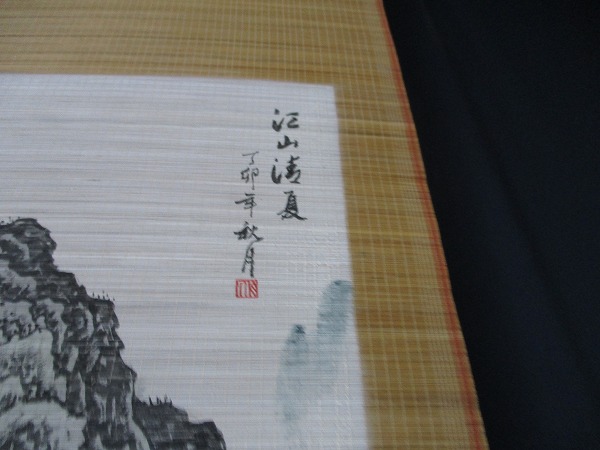 江山清夏
丁卯年秋月